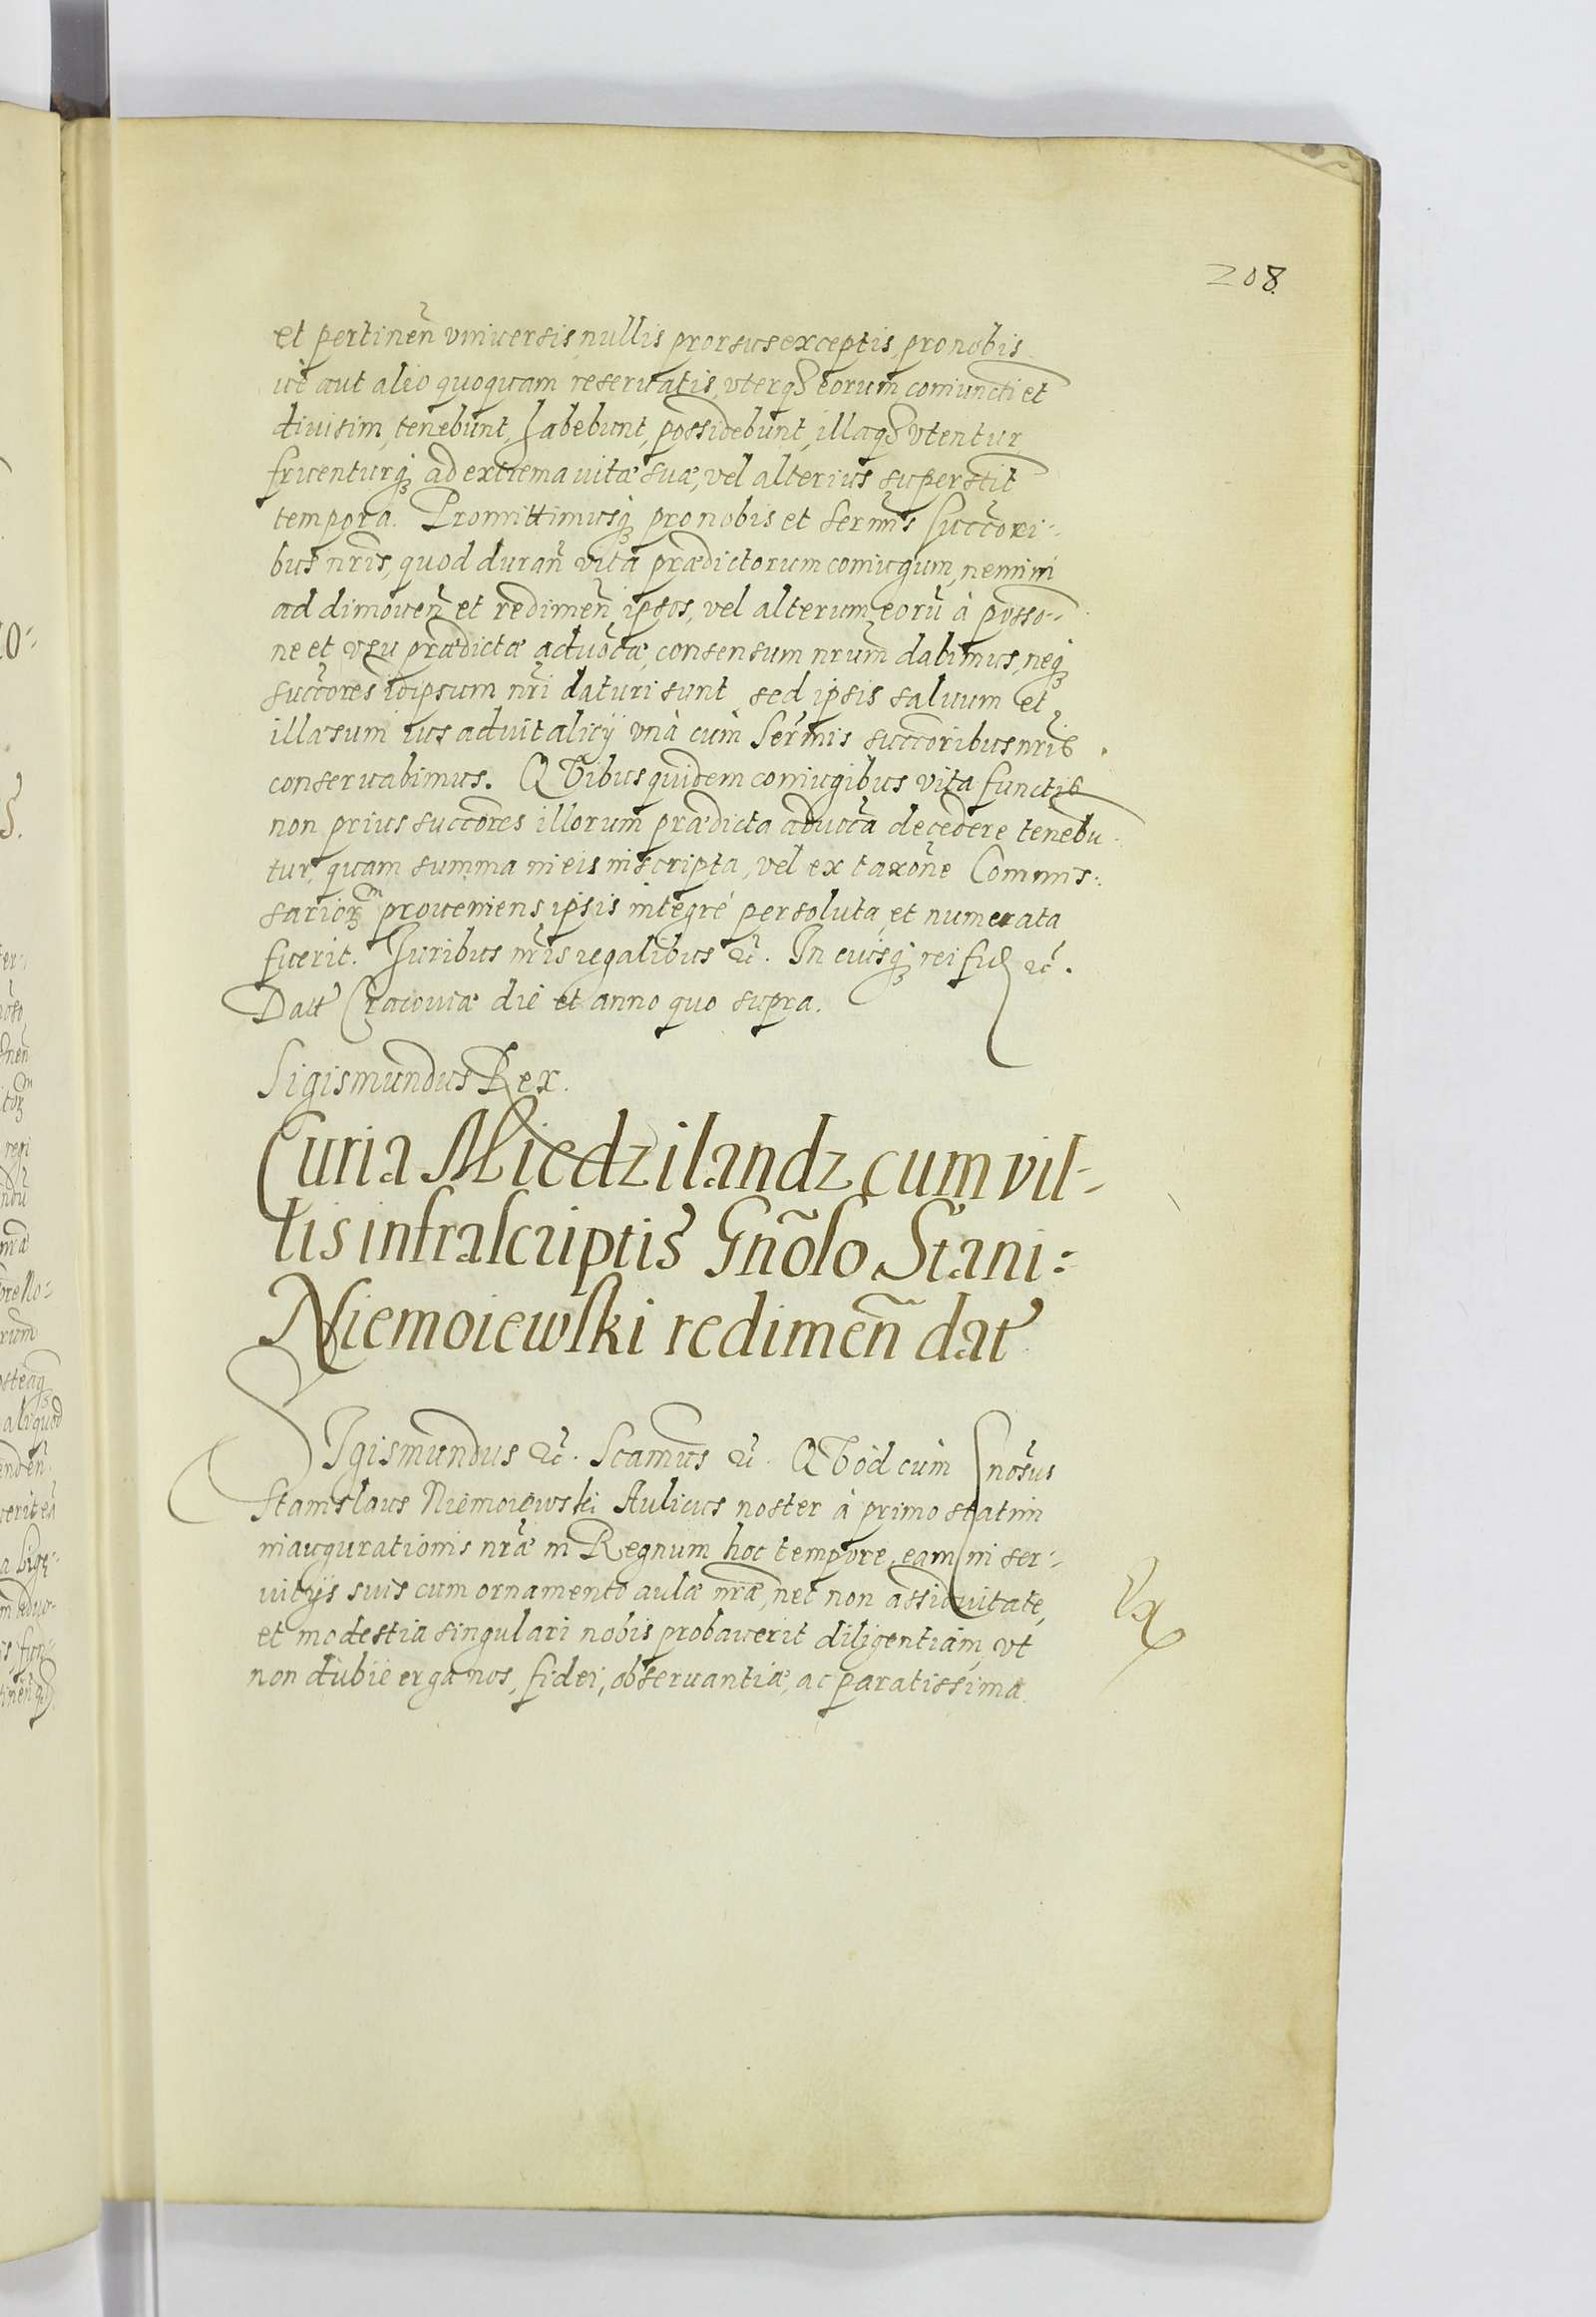 208.
et pertineñ vniuersis nullis prorsus exceptis, pro nobis
ue aut alio quoquam reseruatis, vterq₃ eorum coniuncti et
diuisim, tenebunt, habebunt, possidebunt, illaq₃ vtentur
fruenturq₃ ad extrema vitæ suæ, vel alterius superstit
tempora. Promittimusq₃ pro nobis et Sermis succori-
bus nris, quod durañ vita prædictorum coniugum, nemini
ad dimoueñ et redimeñ ipsos, vel alterum eorū à posso-
ne et vsu prædictæ aduocæ, consensum nrum dabimus, neq₃
succores idipsum nri daturi sunt sed ipsis saluum et
illæsum ius aduitalicij vnà cum Sermis succoribus nris
conseruabimus. QVibus quidem coniugibus vita functis
non prius succores illorum prædicta aduoca decedere tenebu-
tur, quam summa in eis inscripta, vel ex taxone Commis-
sarior₃ proueniens ipsis integré persoluta, et numerata
fuerit. Juribus nris regalibus &c. In cuiusq₃ rei fid &c.
Datt Cracouiæ die et anno quo supra.
Sigismundus Rex.
Curia Miedzilandz cum vil-
lis infrascriptis Gnõso Stani:
Niemoiewski redimeñ dat
SIgismundus &c. Scamus &c. QVod cùm Gnosus
Stanislaus Niemoiewski Aulicus noster à primo statim
inaugurationis nræ in Regnum hoc tempore, eam in ser-
uitijs suis cum ornamento aulæ nræ, nec non assiduitate,
et modestia singulari nobis probauerit diligentiam, vt
non dubiè erga nos, fidei, obseruantiæ, ac paratissima